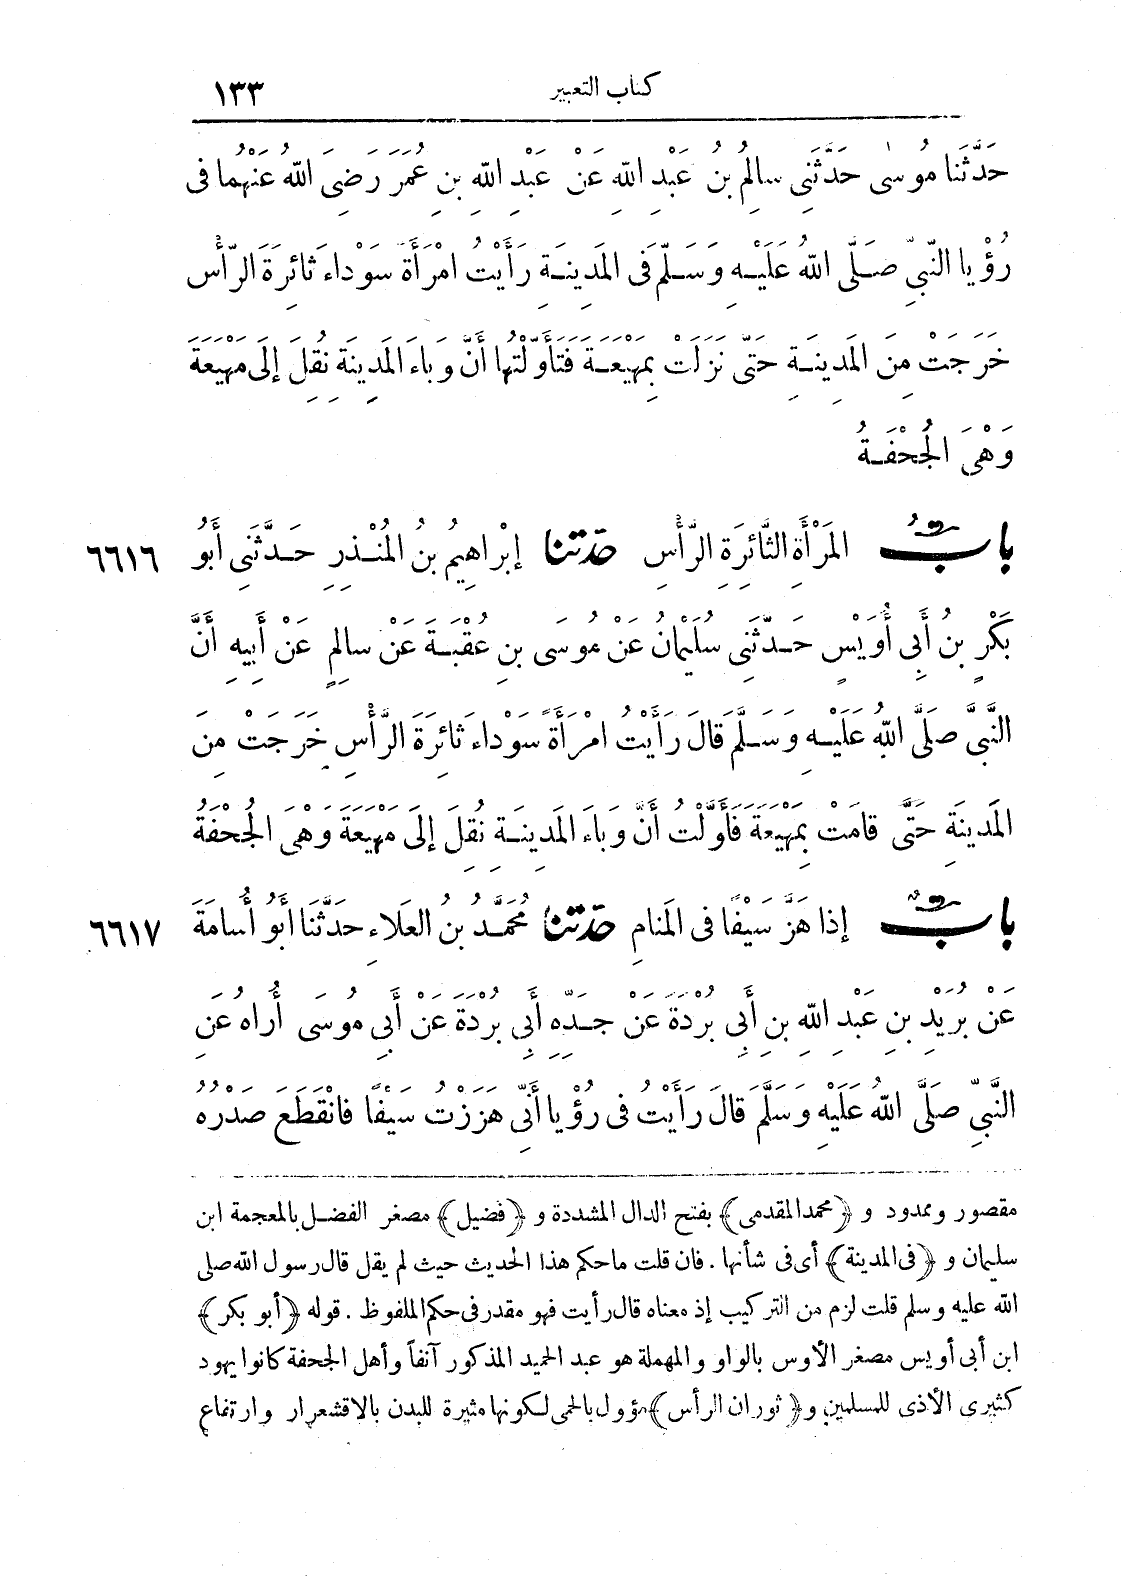 كتاب التعبير ١٣٣
حَدَّثَنا مُوسَى حَدَّثَنِي سالِمُ بنُ عَبْدِ اللهِ عَنْ عَبْدِ اللهِ بنِ عُمَرَ رَضِيَ اللهُ عَنْهُما فى
رُؤْيا النَّبِيِّ صَلَّى اللهُ عَلَيْهِ وَسَلَّمَ فى المَدِينَةِ رَأَيْتُ امْرَأَةً سَوْداءَ ثائِرَةَ الرَّأْسِ
خَرَجَتْ مِنَ المَدِينَةِ حَتَّى نَزَلَتْ بِمَهْيَعَةَ فَتَأَوَّلْتُها أَنَّ وَباءَ المَدِينَةِ نُقِلَ إِلَى مَهْيَعَةَ
وَهْيَ الجُحْفَةُ
بابُ المَرْأَةِ الثَّائِرَةِ الرَّأْسِ حدثنا إِبْراهِيمُ بنُ المُنْذِرِ حَدَّثَنِي أَبُو ٦٦١٦
بَكْرِ بنُ أَبِي أُوَيْسٍ حَدَّثَنِي سُلَيْمانُ عَنْ مُوسَى بنِ عُقْبَةَ عَنْ سالِمٍ عَنْ أَبِيهِ أَنَّ
النَّبِيَّ صَلَّى اللهُ عَلَيْهِ وَسَلَّمَ قالَ رَأَيْتُ امْرَأَةً سَوْداءَ ثائِرَةَ الرَّأْسِ خَرَجَتْ مِنَ
المَدِينَةِ حَتَّى قامَتْ بِمَهْيَعَةَ فَأَوَّلْتُ أَنَّ وَباءَ المَدِينَةِ نُقِلَ إِلَى مَهْيَعَةَ وَهْيَ الجُحْفَةُ
بابٌ إذا هَزَّ سَيْفًا فى المَنامِ حدثنا مُحَمَّدُ بنُ العَلاءِ حَدَّثَنا أَبُو أُسامَةَ ٦٦١٧
عَنْ بُرَيْدِ بنِ عَبْدِ اللهِ بنِ أَبِي بُرْدَةَ عَنْ جَدِّهِ أَبِي بُرْدَةَ عَنْ أَبِي مُوسَى أُراهُ عَنِ
النَّبِيِّ صَلَّى اللهُ عَلَيْهِ وَسَلَّمَ قالَ رَأَيْتُ فى رُؤْيا أَنِّي هَزَزْتُ سَيْفًا فانْقَطَعَ صَدْرُهُ
مقصور وممدود و ﴿محمد المقدمى﴾ بفتح الدال المشددة و ﴿فضيل﴾ مصغر الفضل بالمعجمة ابن
سليمان و ﴿فى المدينة﴾ أى فى شأنها . فان قلت ما حكم هذا الحديث حيث لم يقل قال رسول الله صلى
الله عليه وسلم قلت لزم من التركيب إذ معناه قال رأيت فهو مقدر فى حكم الملفوظ . قوله ﴿أبو بكر﴾
ابن أبى أويس مصغر الأوس بالواو والمهملة هو عبد الحميد المذكور آنفاً وأهل الجحفة كانوا يهود
كثيرى الأذى للمسلمين و﴿ثوران الرأس﴾ مؤول بالحمى لكونها مثيرة للبدن بالاقشعرار وارتفاع